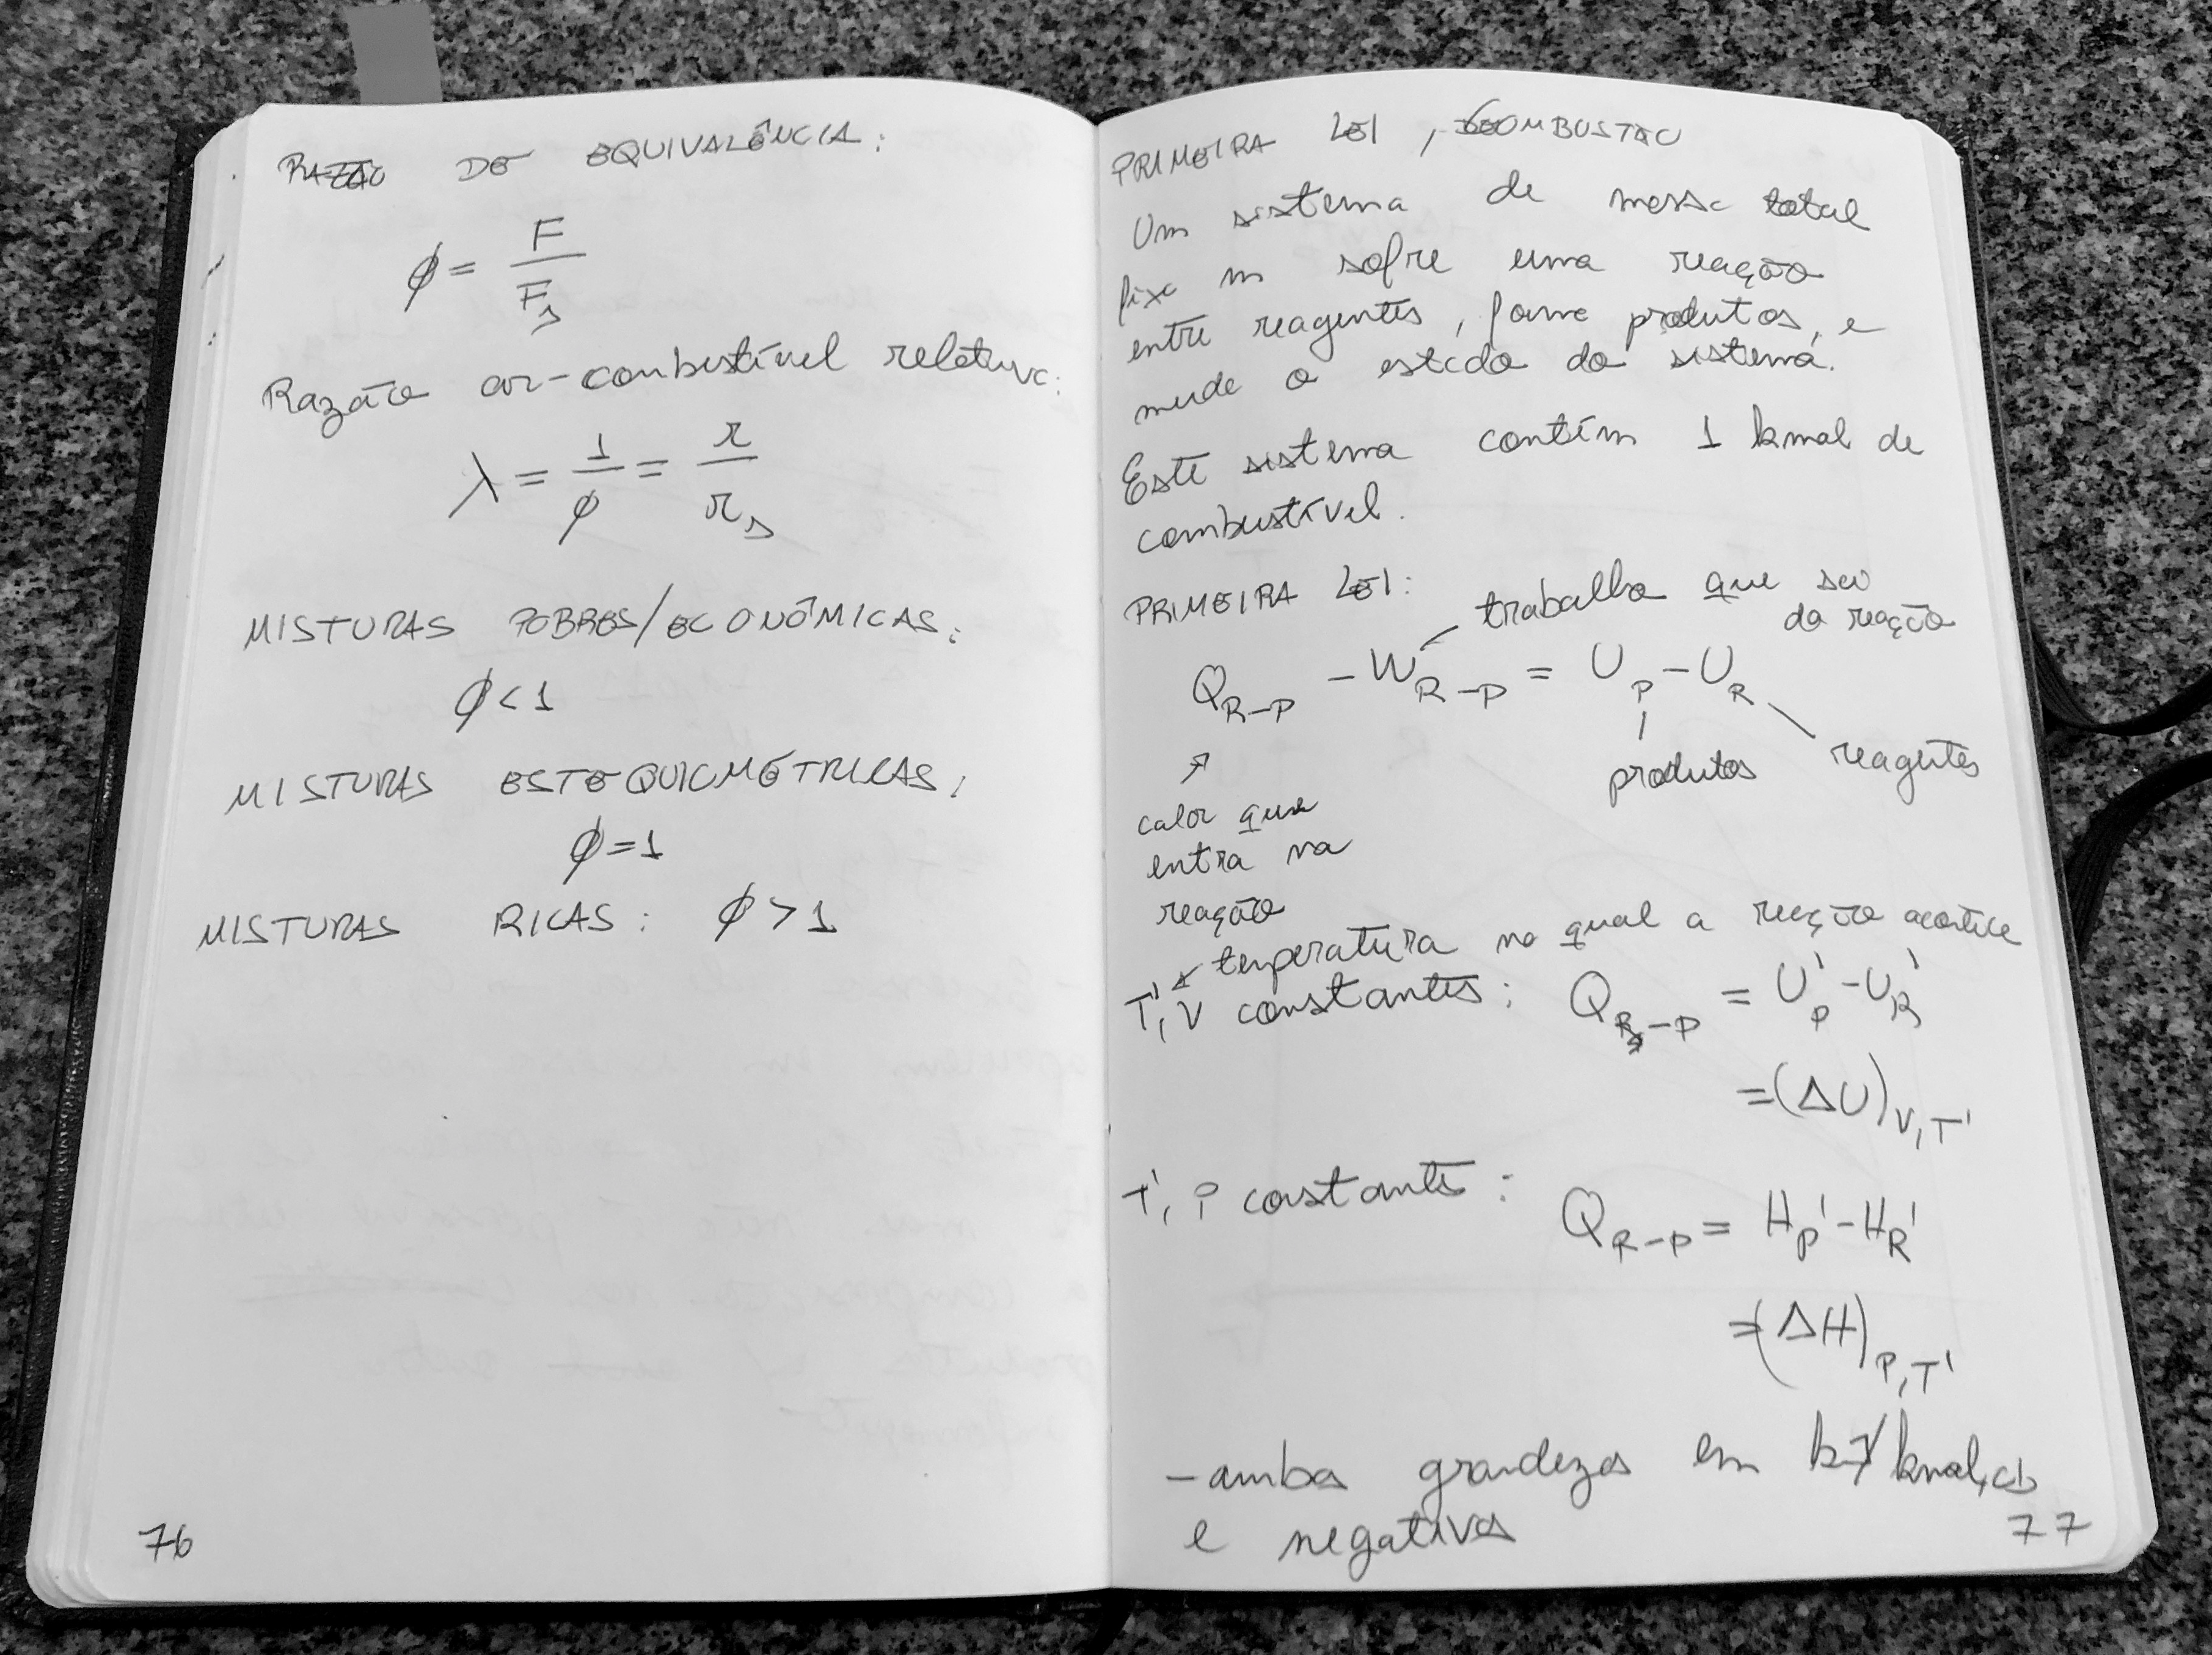 RAZÃO DE EQUIVALÊNCIA:
φ = F / F_s
Razão ar-combustível relativa:
λ = 1/φ = r / r_s
MISTURAS POBRES/ECONÔMICAS:
φ < 1
MISTURAS ESTEQUIOMÉTRICAS:
φ = 1
MISTURAS RICAS: φ > 1
76
PRIMEIRA LEI, COMBUSTÃO
Um sistema de massa total
fixa m sofre uma reação
entre reagentes, forma produtos, e
muda o estado do sistema.
Este sistema contém 1 kmol de
combustível.
PRIMEIRA LEI: trabalho que sai
da reação
Q_R-P - W_R-P = U_P - U_R
produtos reagentes
calor que
entra na
reação
temperatura na qual a reação acontece
T', V constantes: Q_R-P = U'_P - U'_R
= (ΔU)_V,T'
T', P constante: Q_R-P = H'_P - H'_R
= (ΔH)_P,T'
- ambas grandezas em kJ/kmol
e negativas
77